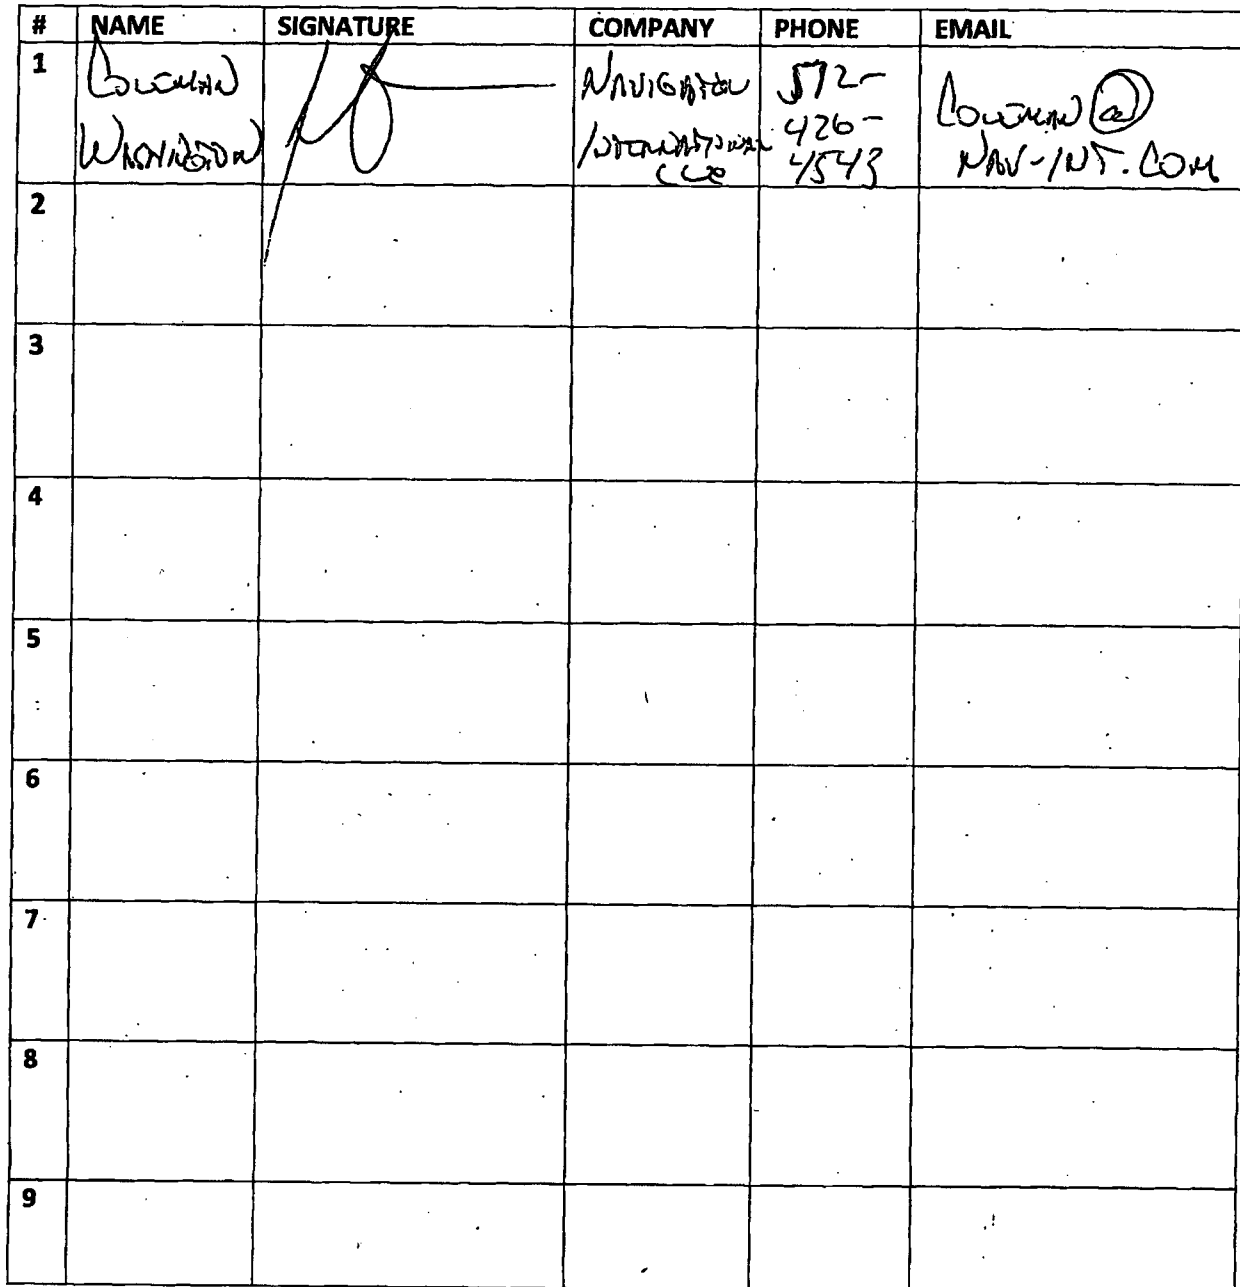 # NAME SIGNATURE COMPANY PHONE EMAIL
1
COLEMAN
WASHINGTON
NAVIGATOR
INTERNATIONAL
LLC
512-
426-
4543
COLEMAN @
NAV-INT.COM
2
3
4
5
6
7
8
9